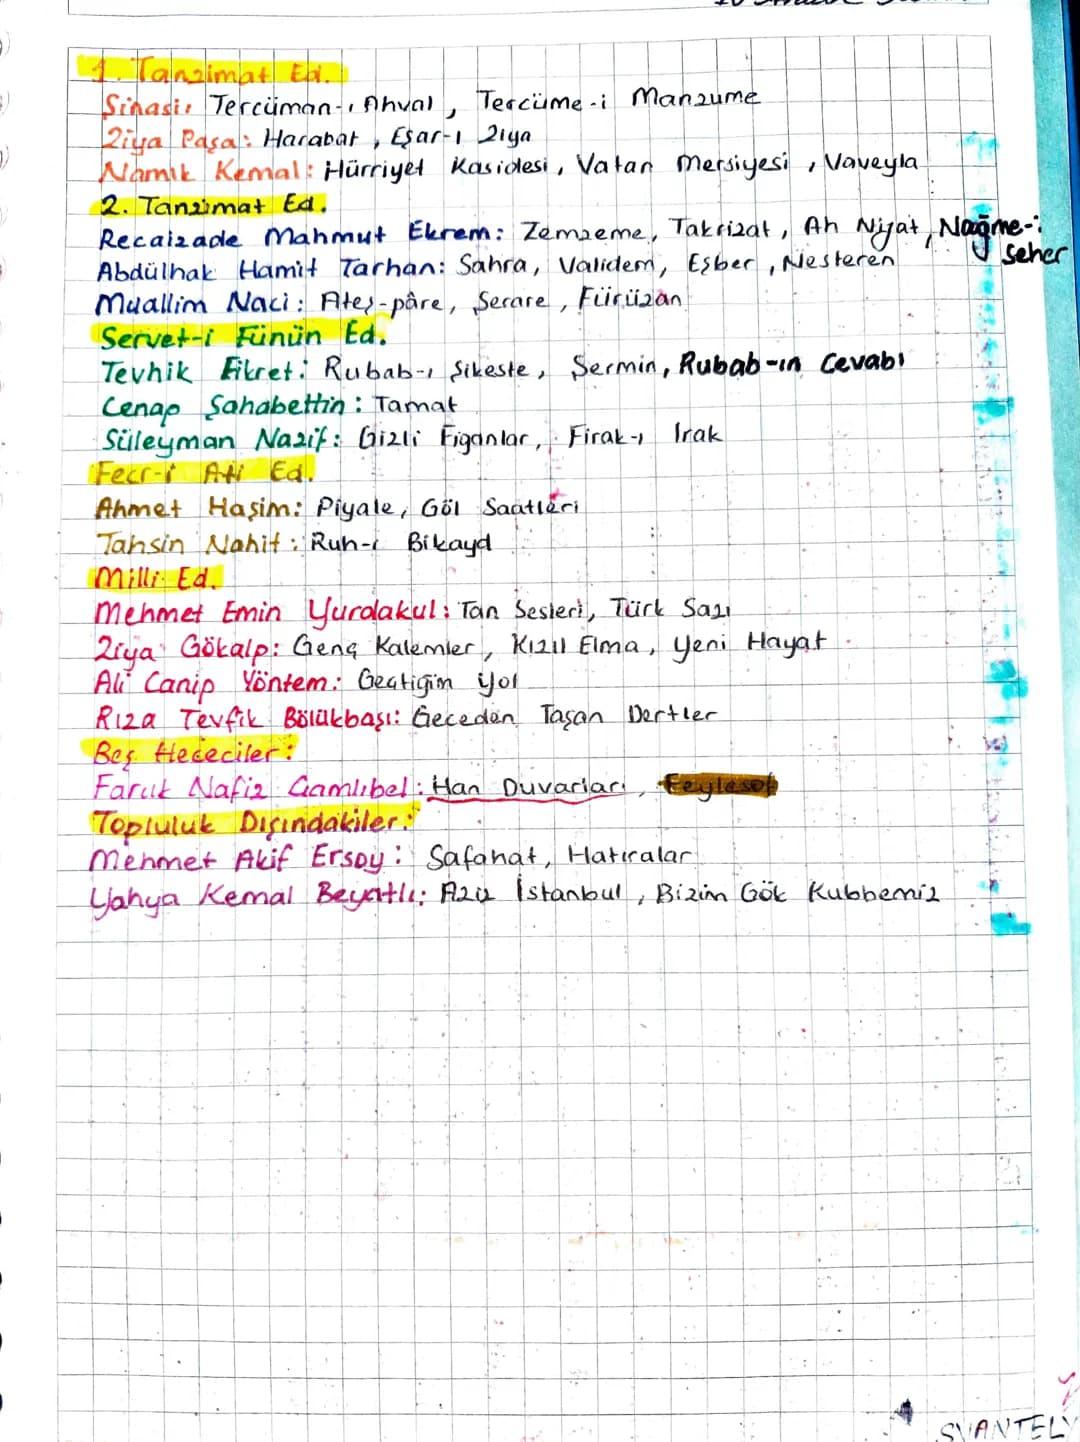 1. Tanzimat Ed.
Şinasi: Tercüman-ı Ahval, Tercüme-i Manzume
Ziya Paşa: Harabat, Eşar-ı Ziya
Namık Kemal: Hürriyet Kasidesi, Vatan Mersiyesi, Vaveyla
2. Tanzimat Ed.
Recaizade Mahmut Ekrem: Zemzeme, Takrizat, Ah Nijat, Nağme-i seher
Abdülhak Hamit Tarhan: Sahra, Validem, Eşber, Nesteren
Muallim Naci: Ateş-pâre, Şerare, Fürüzan
Servet-i Fünün Ed.
Tevhik Fikret: Rubab-ı Şikeste, Şermin, Rubab-ın Cevabı
Cenap Şahabettin: Tamat
Süleyman Nazif: Gizli Figanlar, Firak-ı Irak
Fecr-i Ati Ed.
Ahmet Haşim: Piyale, Göl Saatleri
Tahsin Nahit: Ruh-ı Bikayd
Milli Ed.
Mehmet Emin Yurdakul: Tan Sesleri, Türk Sazı
Ziya Gökalp: Genç Kalemler, Kızıl Elma, Yeni Hayat
Ali Canip Yöntem: Geçtiğim yol
Rıza Tevfik Bölükbaşı: Geceden Taşan Dertler
Beş Hececiler:
Faruk Nafiz Çamlıbel: Han Duvarları, Feylesof
Topluluk Dışındakiler:
Mehmet Akif Ersoy: Safahat, Hatıralar
Yahya Kemal Beyatlı: Aziz İstanbul, Bizim Gök Kubbemiz